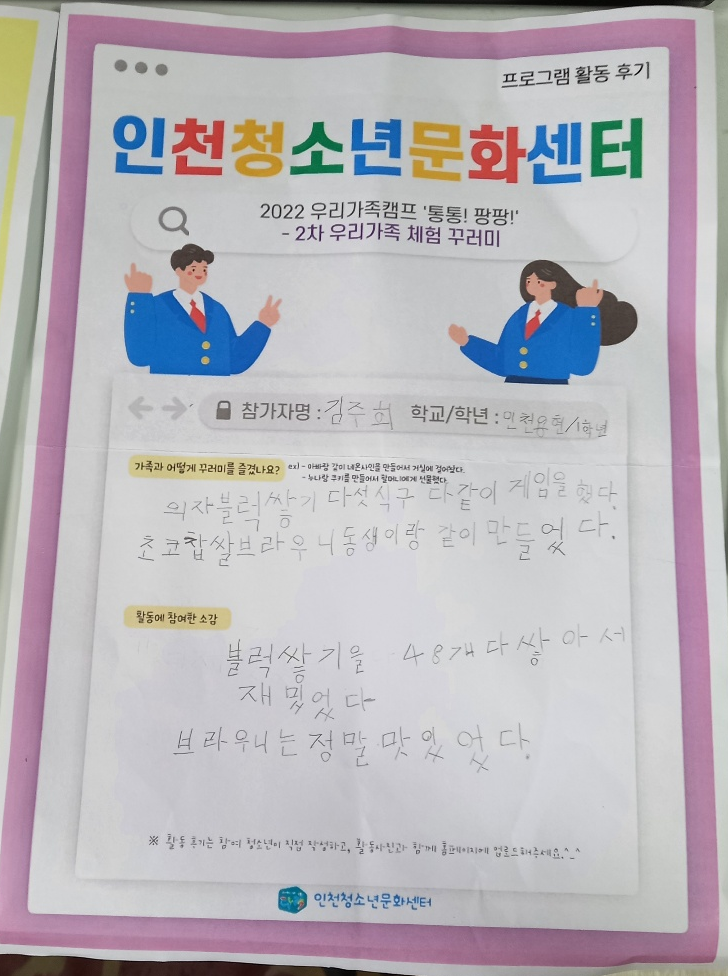 프로그램 활동 후기
인천청소년문화센터
2022 우리가족캠프 '통통! 팡팡!'
- 2차 우리가족 체험 꾸러미
참가자명 : 김주희 학교/학년 : 인천용현/1학년
가족과 어떻게 꾸러미를 즐겼나요? ex) - 아빠랑 같이 네온사인을 만들어서 거실에 걸어놨다.
- 누나랑 쿠키를 만들어서 할머니에게 선물했다.
의자블럭쌓기 다섯식구 다같이 게임을 했다.
초코찹쌀브라우니동생이랑 같이 만들었다.
활동에 참여한 소감
블럭쌓기을 48개 다쌓아서
재밌었다
브라우니는 정말 맛있었다.
※ 활동 후기는 참여 청소년이 직접 작성하고, 활동사진과 함께 홈페이지에 업로드해주세요.^_^
인천청소년문화센터